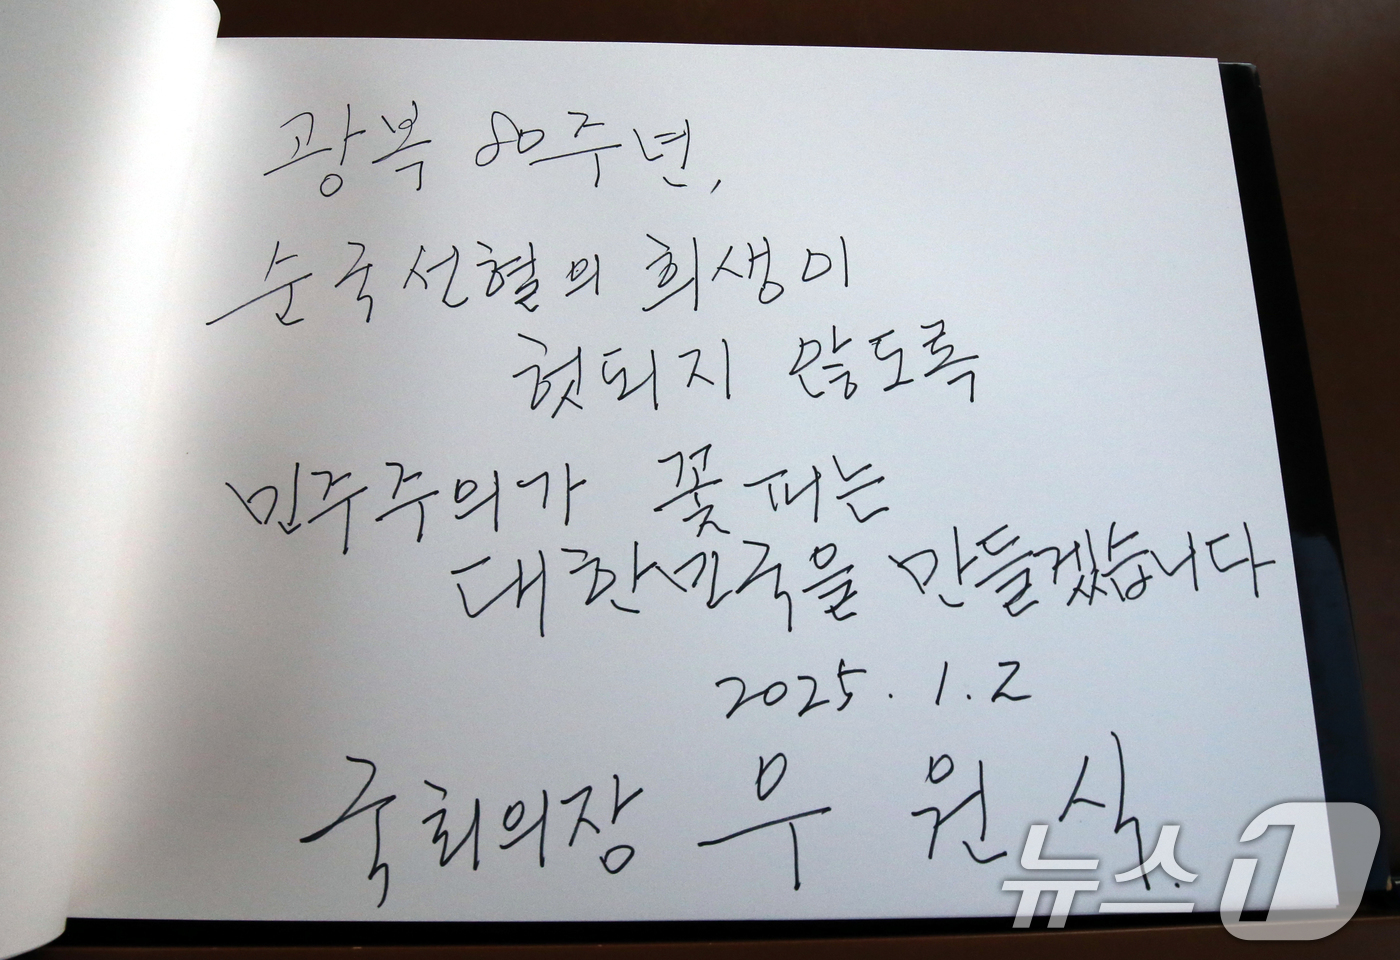 광복 80주년,
순국선혈의 희생이
헛되지 않도록
민주주의가 꽃피는
대한민국을 만들겠습니다
2025. 1. 2
국회의장 우원식.
뉴스1